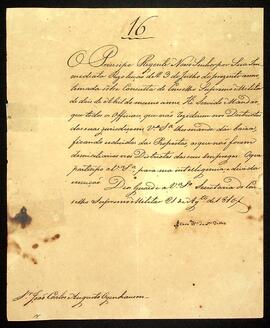 16
O Principe Regente Nosso Senhor por Sua Im-
mediata Rezolução de 3 de Julho do prezente anno,
tomada sobre Consulta do Conselho Supremo Militar
de de Abril do mesmo anno He Servido Mandar,
que todos os Officiaes que não rezidirem nos Districtos
das suas jurisdiçoens, V.S.ª lhes mande dar baixa,
ficando rezidentes os Propostos, aquem forem
domiciliarios nos Districtos dos seus empregos. O que
participo a V.S.ª para sua intelligencia, e devida
execução. Deos Guarde a V.S.ª Secretaria do Con-
selho Supremo Militar de Ag.to de 1810
S.r João Carlos Augusto Oyenhausen